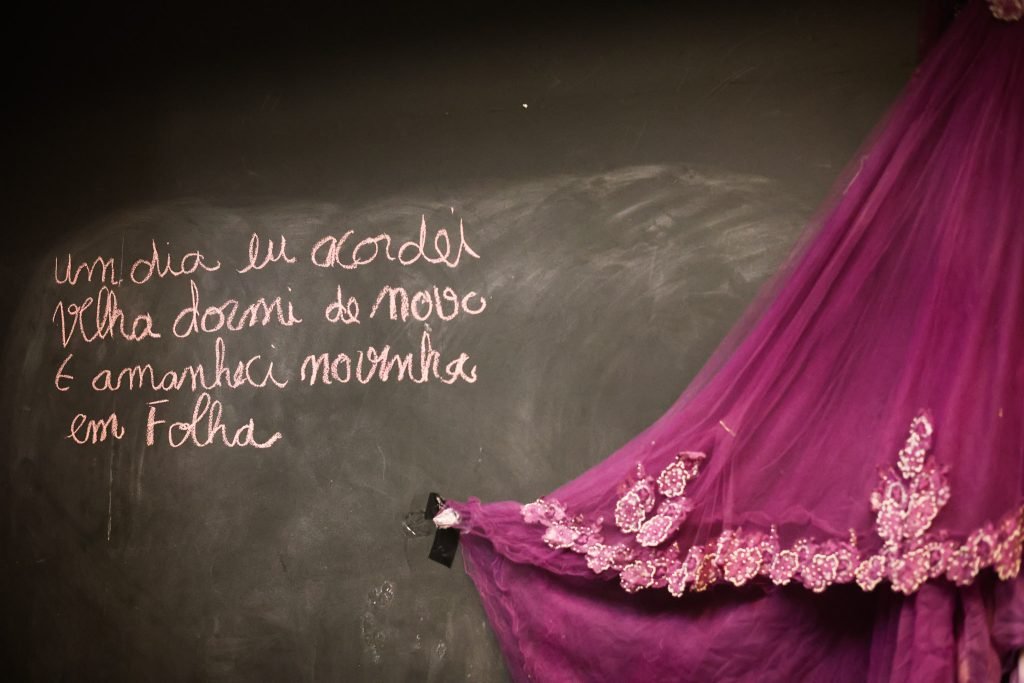 um dia eu acordei
velha dormi de novo
E amanheci novinha
em Folha